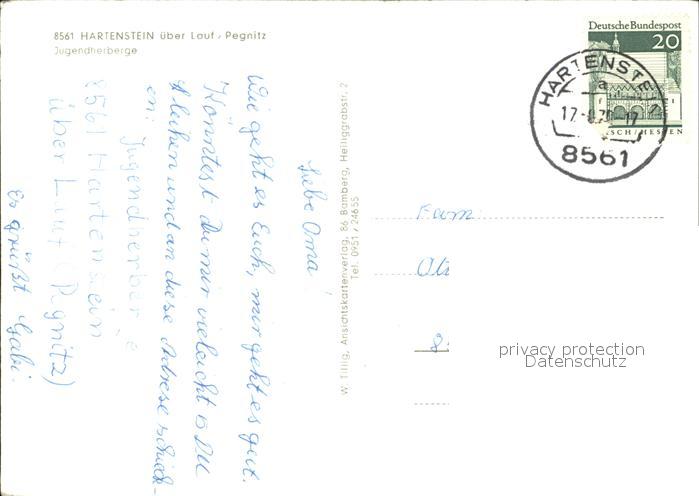 8561 HARTENSTEIN über Lauf, Pegnitz
Jugendherberge
Liebe Oma!
Wie geht es Euch, mir geht es gut.
Könntest Du mir vieleicht 5 DM
leihen und an diese Adrese schick-
en:
Jugendherberge
8561 Hartenstein
über Lauf (Pegnitz)
Es grüßt Gabi.
W. Tillig, Ansichtskartenverlag, 86 Bamberg, Heiliggrabstr. 2
Tel. 0951 / 24655
Deutsche Bundespost
20
LORSCH/HESSEN
HARTENSTEIN
a
8561
Fam.
8
privacy protection
Datenschutz